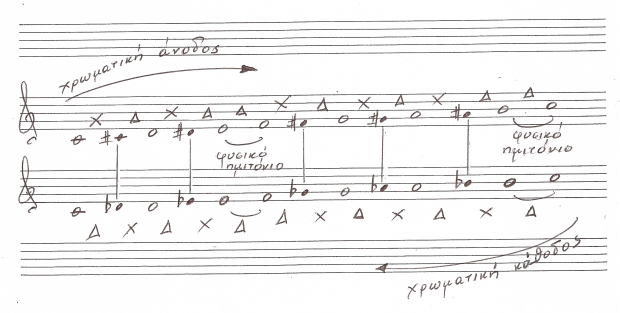 χρωματική άνοδος
χ Δ χ Δ Δ χ Δ χ Δ χ Δ Δ
φυσικό
ημιτόνιο
φυσικό
ημιτόνιο
Δ χ Δ χ Δ Δ χ Δ χ Δ χ Δ
χρωματική κάθοδος